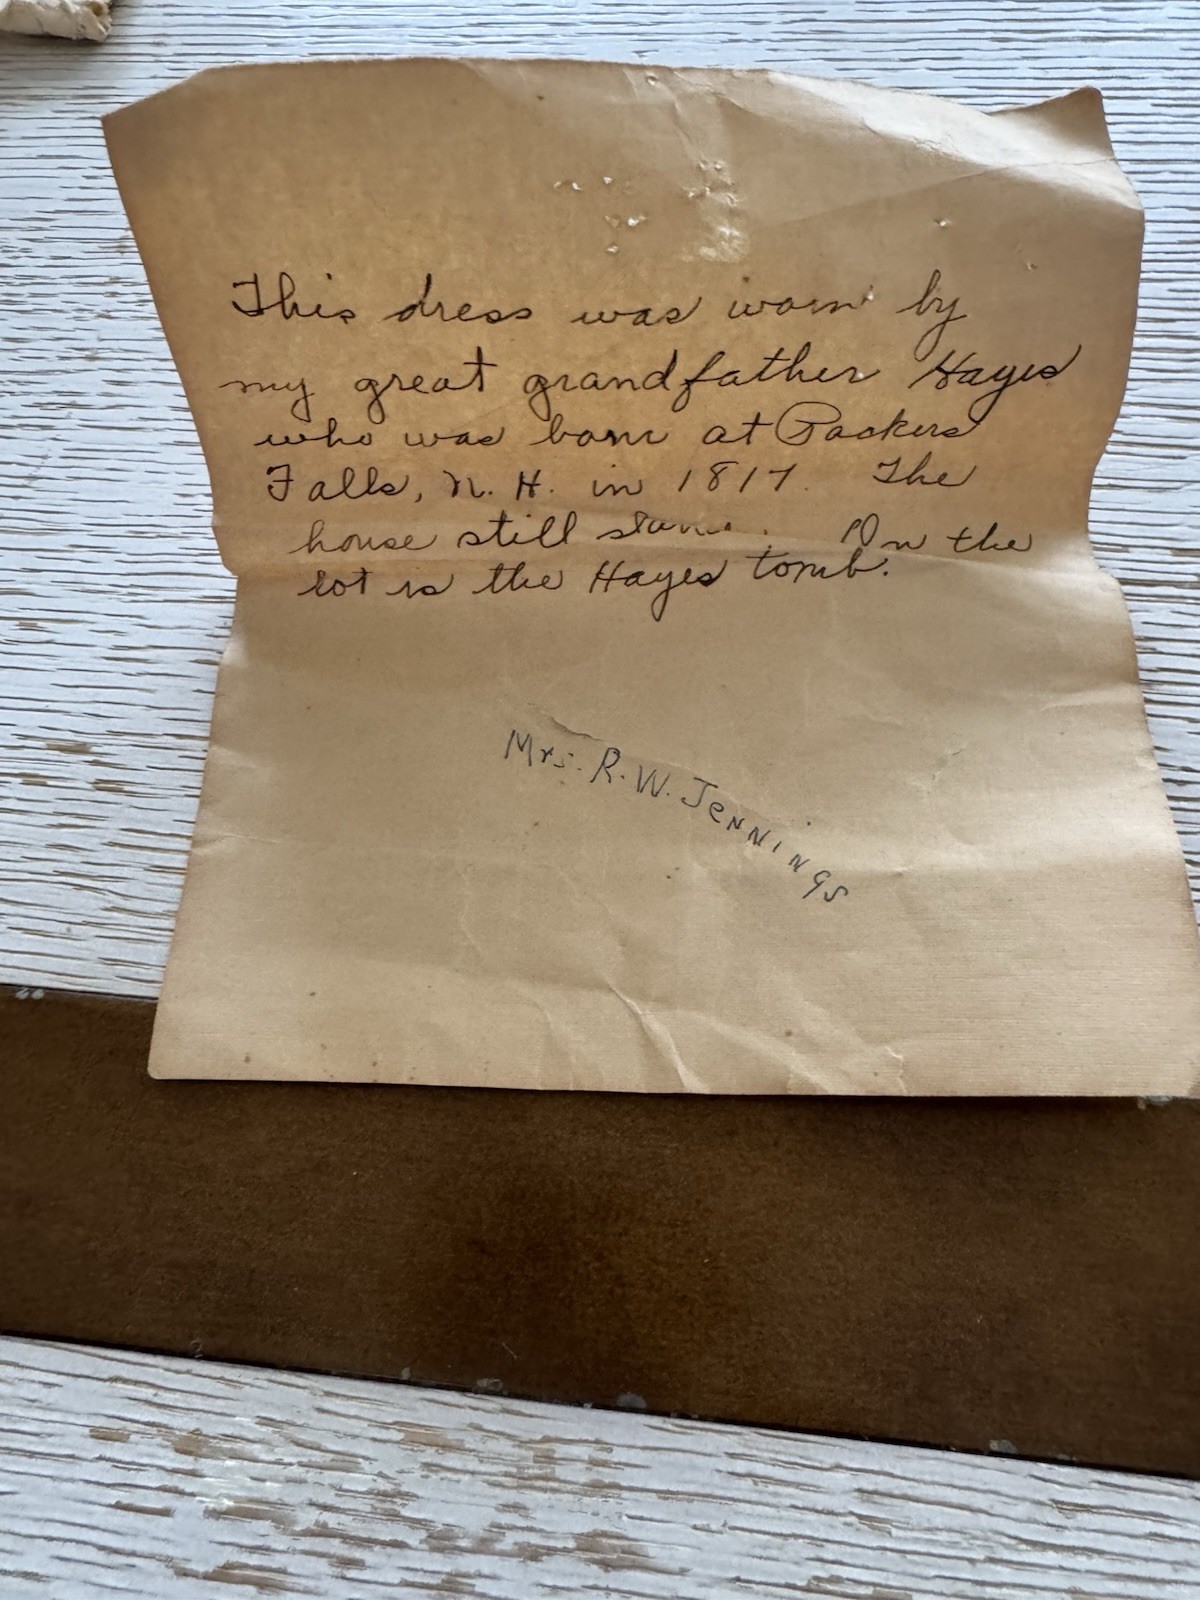 This dress was worn by
my great grandfather Hayes
who was born at Packers
Falls, N. H. in 1817. The
house still stands. On the
lot is the Hayes tomb.
Mrs. R. W. Jennings